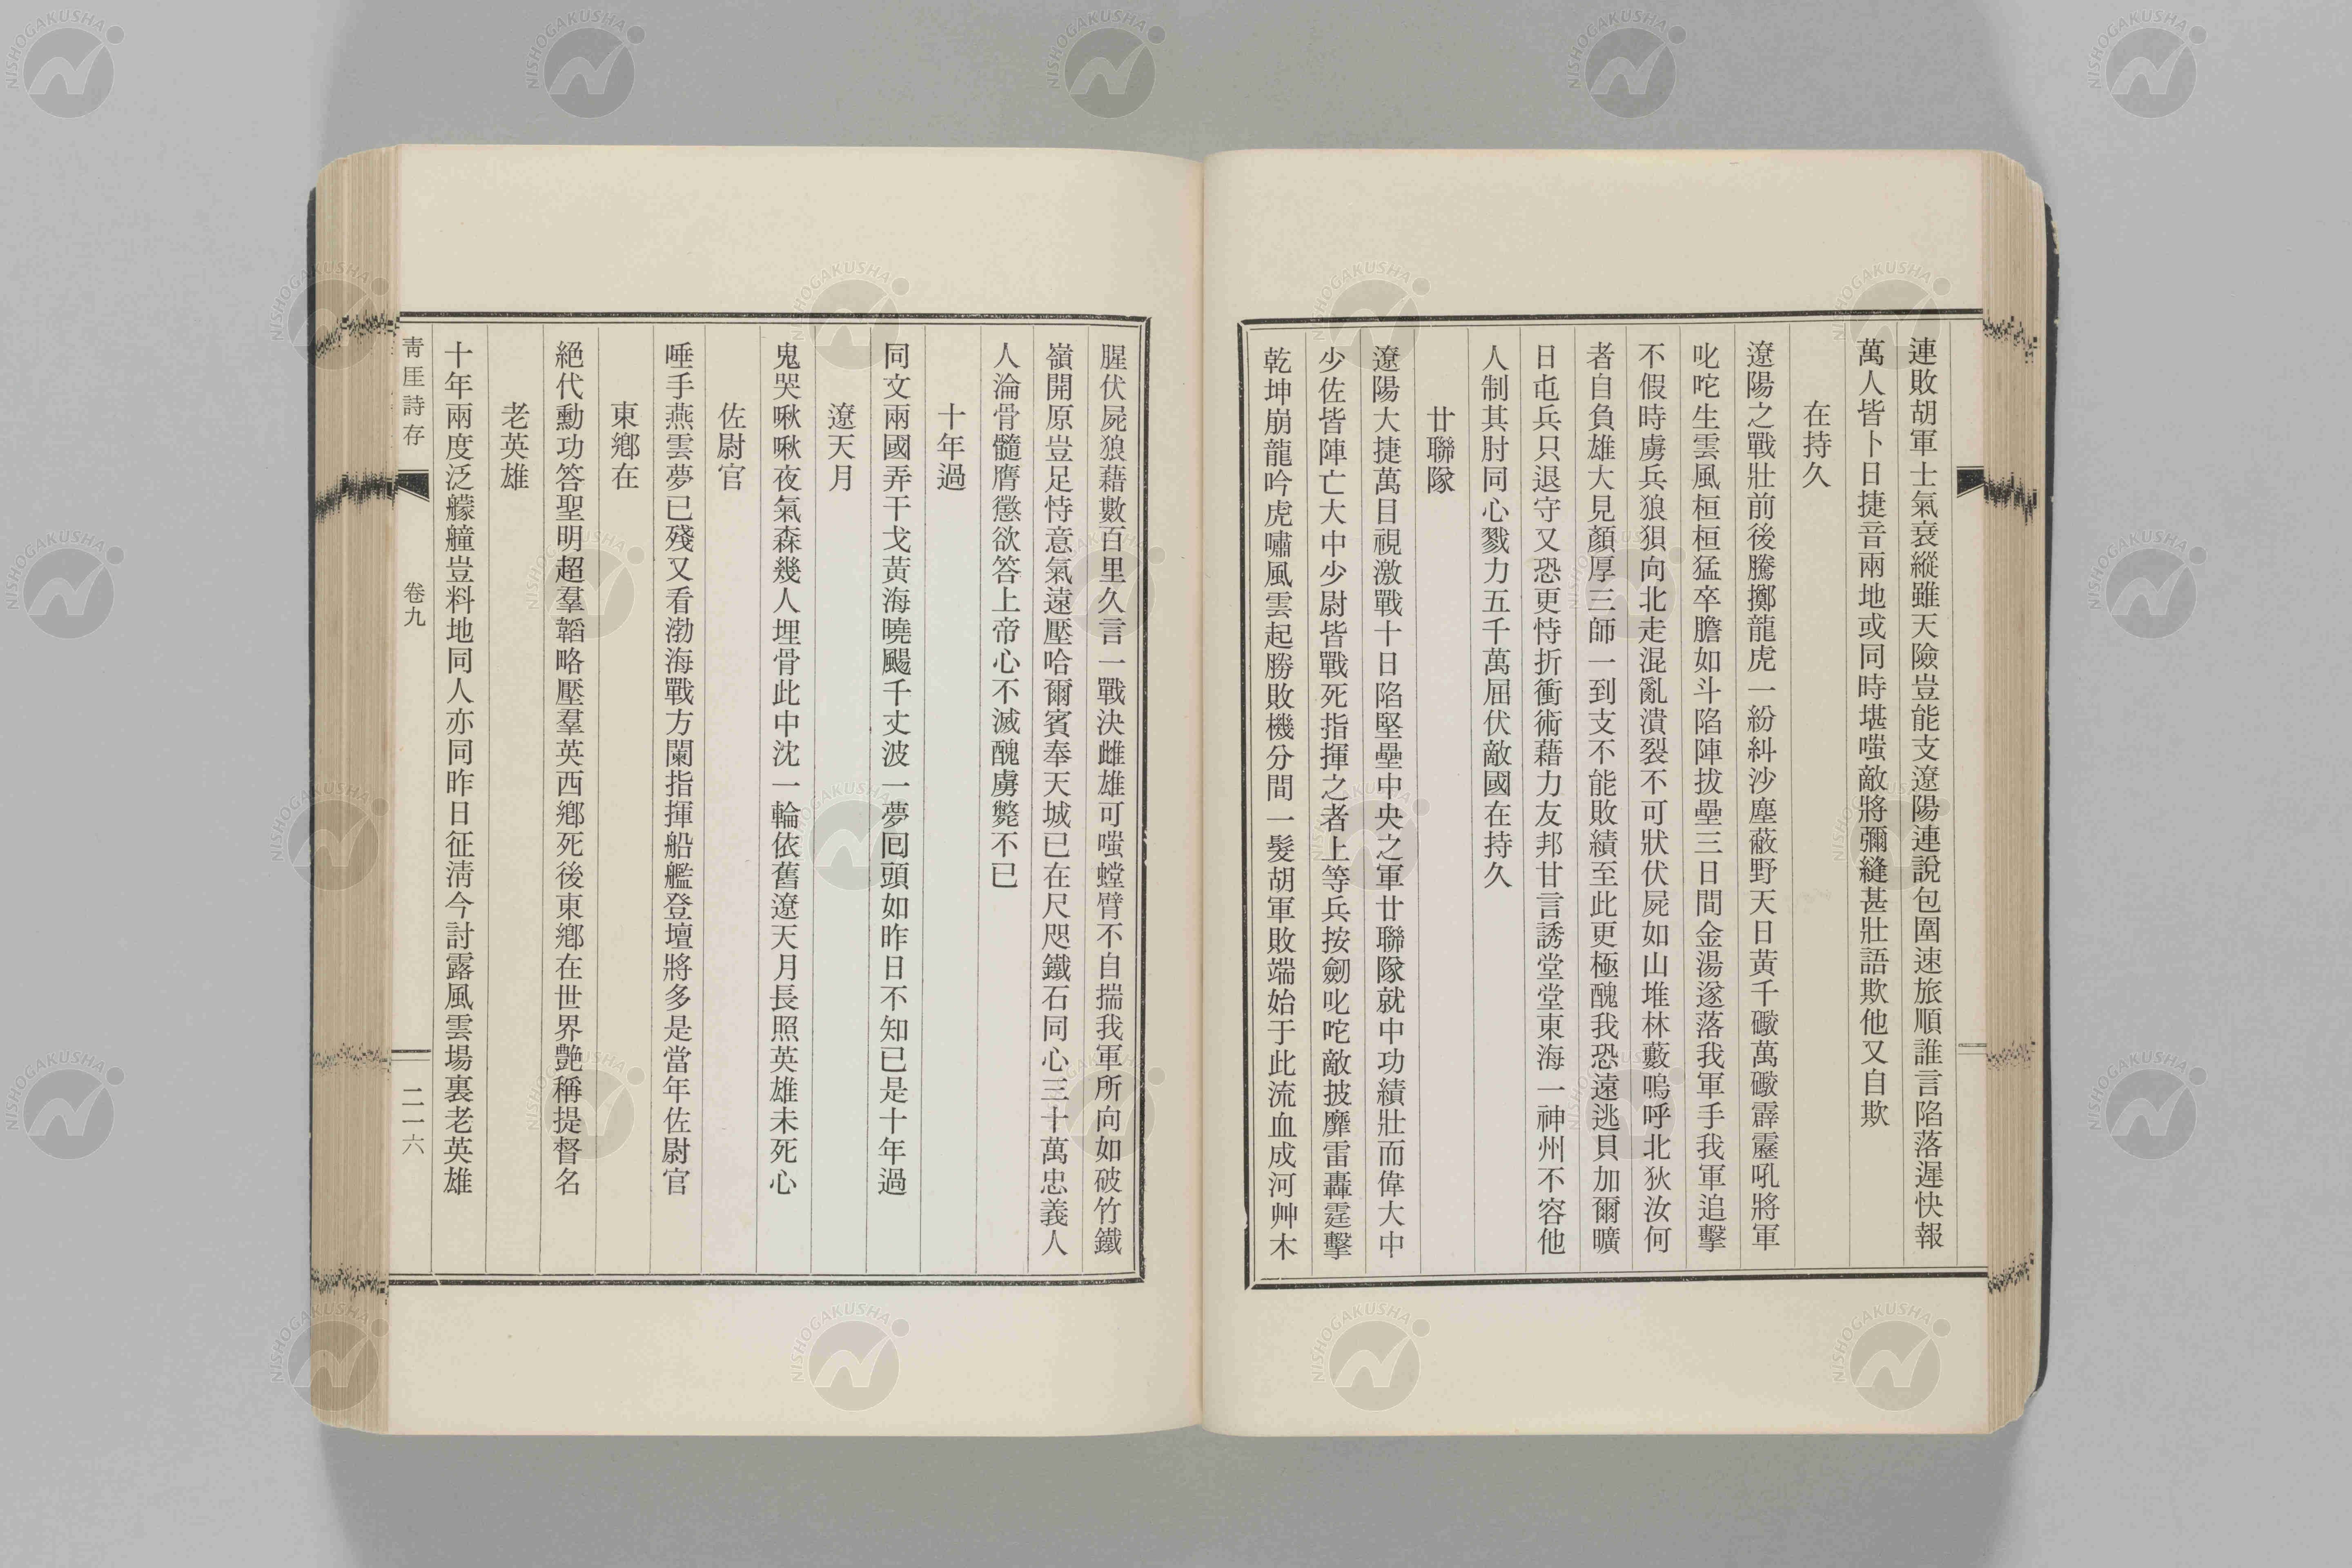 連敗胡軍士氣衰縱雖天險豈能支遼陽連說包圍速旅順誰言陷落遲快報
萬人皆卜日捷音兩地或同時堪嗤敵將彌縫甚壯語欺他又自欺
在持久
遼陽之戰壯前後騰擲龍虎一紛糾沙塵蔽野天日黃千礮萬礮霹靂吼將軍
叱咤生雲風桓桓猛卒膽如斗陷陣拔壘三日間金湯遂落我軍手我軍追擊
不假時虜兵狼狽向北走混亂潰裂不可狀伏屍如山堆林藪嗚呼北狄汝何
者自負雄大見顏厚三師一到支不能敗績至此更極醜我恐遠逃貝加爾曠
日屯兵只退守又恐更恃折衝術藉力友邦甘言誘堂堂東海一神州不容他
人制其肘同心戮力五千萬屈伏敵國在持久
廿聯隊
遼陽大捷萬目視激戰十日陷堅壘中央之軍廿聯隊就中功績壯而偉大中
少佐皆陣亡大中少尉皆戰死指揮之者上等兵按劒叱咤敵披靡雷轟霆擊
乾坤崩龍吟虎嘯風雲起勝敗機分間一髮胡軍敗端始于此流血成河艸木
腥伏屍狼藉數百里久言一戰決雌雄可嗤螳臂不自揣我軍所向如破竹鐵
嶺開原豈足恃意氣遠壓哈爾賓奉天城已在尺咫鐵石同心三十萬忠義人
人淪骨髓膺懲欲答上帝心不滅醜虜斃不已
十年過
同文兩國弄干戈黃海曉颺千丈波一夢囘頭如昨日不知已是十年過
遼天月
鬼哭啾啾夜氣森幾人埋骨此中沈一輪依舊遼天月長照英雄未死心
佐尉官
唾手燕雲夢已殘又看渤海戰方闌指揮船艦登壇將多是當年佐尉官
東鄉在
絕代勳功答聖明超羣韜略壓羣英西鄉死後東鄉在世界艷稱提督名
老英雄
十年兩度泛艨艟豈料地同人亦同昨日征清今討露風雲場裏老英雄
靑厓詩存
卷九
二一六
NISHOGAKUSHA